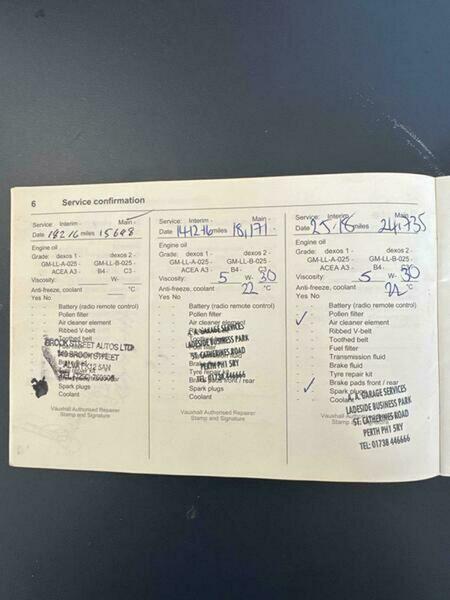 6 Service confirmation
Service: Interim - Main -
Date 18 2 16 miles 15698
Engine oil
Grade: dexos 1 - dexos 2 -
GM-LL-A-025 - GM-LL-B-025 -
ACEA A3 - B4 - C3 -
Viscosity: W-
Anti-freeze, coolant °C
Yes No
Battery (radio remote control)
Pollen filter
Air cleaner element
Ribbed V-belt
Toothed belt
BROOK STREET AUTOS LTD
BROOK STREET
ALVA FK12 5AN
Spark plugs
Coolant
Vauxhall Authorised Repairer
Stamp and Signature
Service: Interim - Main -
Date 14 12 16 miles 18,171
Engine oil
Grade: dexos 1 - dexos 2 -
GM-LL-A-025 - GM-LL-B-025 -
ACEA A3 - B4 - C3 -
Viscosity: 5 W- 30
Anti-freeze, coolant 22 °C
Yes No
Battery (radio remote control)
Pollen filter
Air cleaner element
A. A. GARAGE SERVICES
LADESIDE BUSINESS PARK
ST. CATHERINES ROAD
PERTH PH1 5RY
TEL: 01738 446666
Brake pads front / rear
Spark plugs
Coolant
Vauxhall Authorised Repairer
Stamp and Signature
Service: Interim - Main -
Date 2 5 18 miles 24,335
Engine oil
Grade: dexos 1 - dexos 2 -
GM-LL-A-025 - GM-LL-B-025 -
ACEA A3 - B4 - C3 -
Viscosity: 5 W- 30
Anti-freeze, coolant 22 °C
Yes No
Battery (radio remote control)
Pollen filter
Air cleaner element
Ribbed V-belt
Toothed belt
Fuel filter
Transmission fluid
Brake fluid
Tyre repair kit
Brake pads front / rear
Spark plugs
Coolant
A. A. GARAGE SERVICES
LADESIDE BUSINESS PARK
ST. CATHERINES ROAD
PERTH PH1 5RY
TEL: 01738 446666